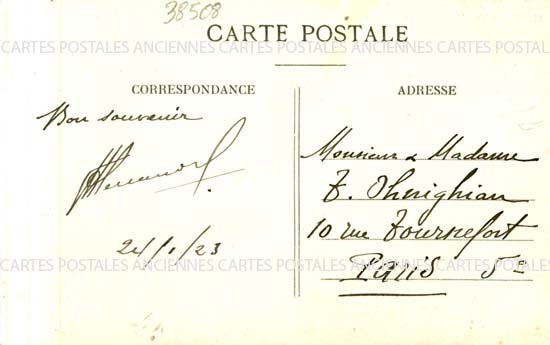 38508
CARTE POSTALE
CARTES POSTALES ANCIENNES CARTES POSTALES ANCIENNES CARTES POSTALES
CORRESPONDANCE
Bon souvenir
24/1/23
ADRESSE
Monsieur & Madame
10 rue Tournefort
CARTES POSTALES ANCIENNES CARTES POSTALES ANCIENNES CARTES POSTALES
Paris 5E